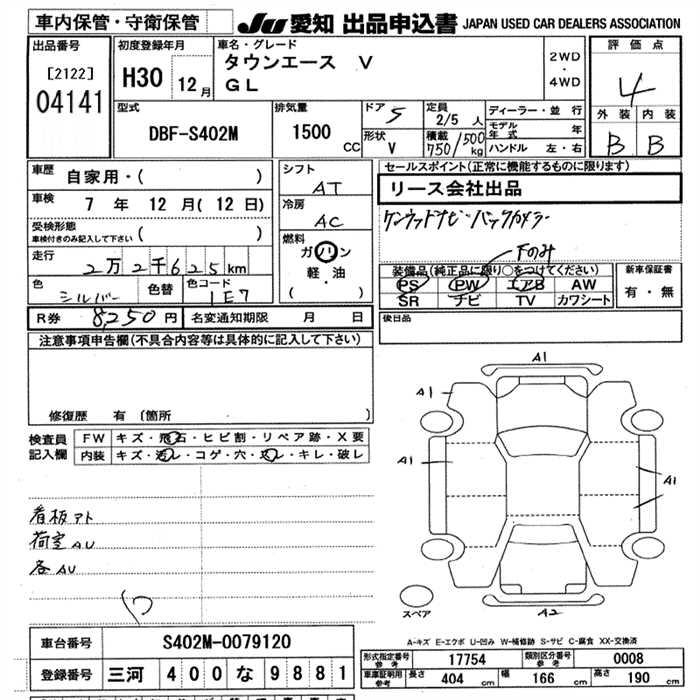 車内保管・守衛保管
JU 愛知 出品申込書 JAPAN USED CAR DEALERS ASSOCIATION
出品番号
[2122]
04141
初度登録年月
H30 12月
車名・グレード
タウンエース V
GL
2WD
・
4WD
評価点
4
外装 内装
B B
型式
DBF-S402M
排気量
1500 CC
ドア 5
形状 V
定員 2/5 人
積載 750/500 kg
ディーラー・並行
モデル年式 年
ハンドル 左・右
車歴 自家用・( )
車検 7 年 12 月(12 日)
受検形態
車検付きのみ記入して下さい ( )
走行 2万2千625km
色 シルバー 色替 色コード 1E7
R券 8,250円 名変通知期限 月 日
シフト
AT
冷房
AC
燃料
ガソリン
軽・油
( )
セールスポイント(正常に機能するものに限ります)
リース会社出品
ケンウッドナビ・バックカメラー
下のみ
装備品(純正品に限り○をつけてください)
PS PW エアB AW
SR ナビ TV カワシート
新車保証書
有・無
後日品
注意事項申告欄(不具合内容等は具体的に記入して下さい)
修復歴 有 (箇所 )
検査員記入欄
FW キズ・飛石・ヒビ割・リペア跡・X要
内装 キズ・汚レ・コゲ・穴・スレ・キレ・破レ
看板アト
荷室AU
各AU
A1
A1
A1
A1
A2
スペア
A-キズ E-エクボ U-凹み W-補修跡 S-サビ C-腐食 XX-交換済
車台番号 S402M-0079120
登録番号 三河 400 な 9881
型式指定番号 参考 17754 類別区分番号 参考 0008
車庫証明用 参考 長さ 404 cm 幅 166 cm 高さ 190 cm